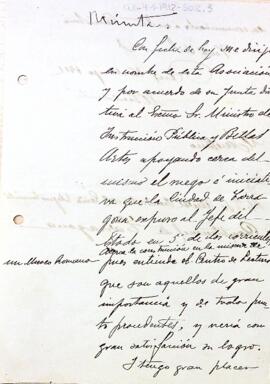 Minuta
Con fecha de hoy me dirijo
en nombre de esta Asociación
y por acuerdo de su Junta direc
tiva al Excmo Sr. Ministro de
Instrucción Pública y Bellas
Artes apoyando cerca del
mismo el ruego é iniciati
va que la Ciudad de Tarra
gona expuso al Jefe del
Estado en 5 de los corrientes
la construcción en la misma de
un Museo Romano
pues entiende el Centro de Lectura
que son aquellos de gran
importancia y de todo pun
to procedentes, y vería con
gran satisfacción su logro.
Y tengo gran placer